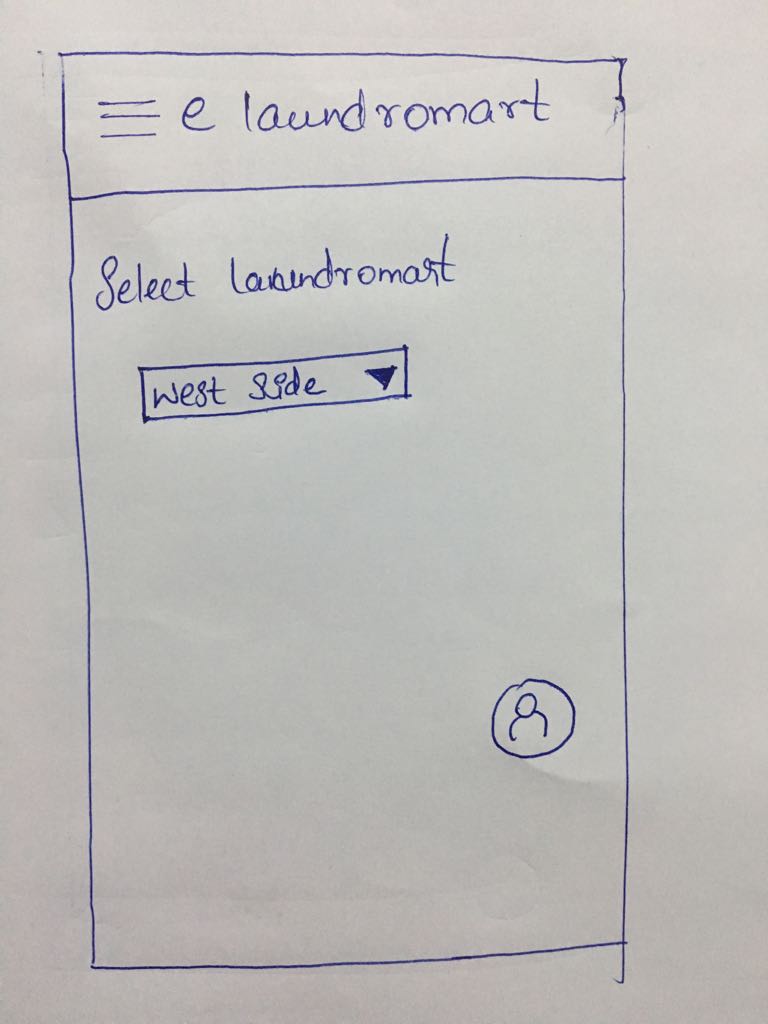 e laundromart
Select laundromart
West Side